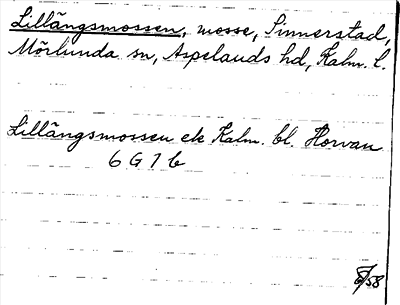 Lillängsmossen, mosse, Sinnerstad,
Mörlunda sn, Aspelands hd, Kalm. l.
Lillängsmossen ek Kalm. bl. Horvan
6 G 1 b
/58